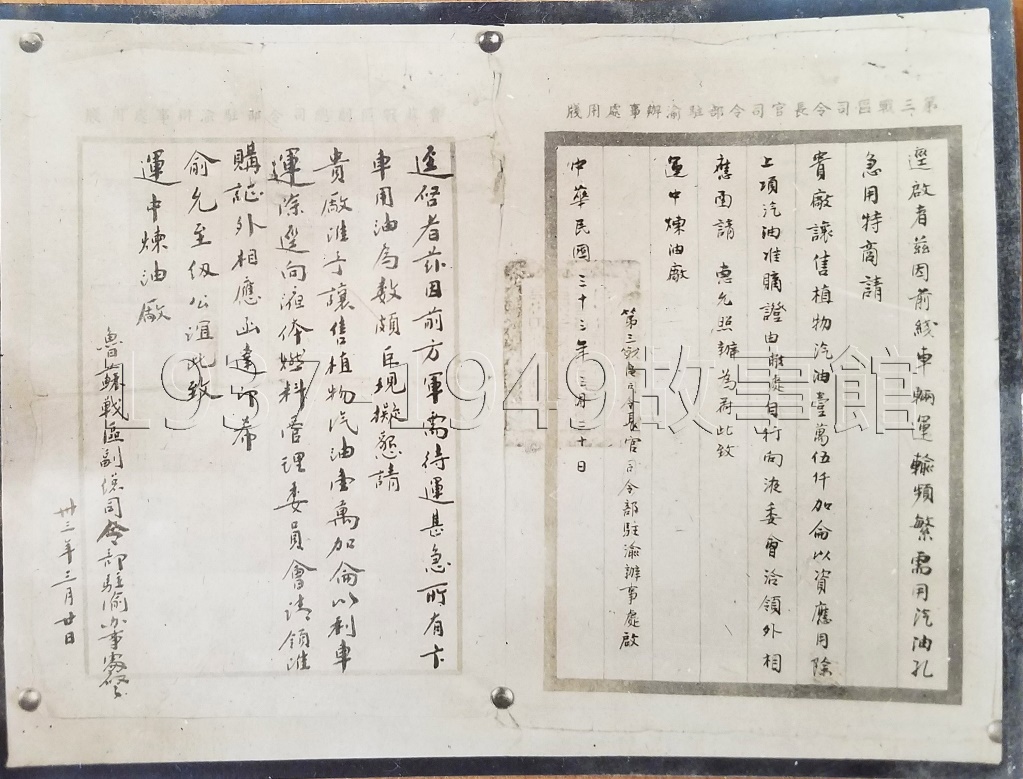 第三戰區司令長官司令部駐渝辦事處用牋
逕啟者茲因前綫車輛運輸頻繁需用汽油孔
急用特商請
貴廠讓售植物汽油壹萬伍仟加侖以資應用除
上項汽油准購證由敝處自行向液委會洽領外相
應函請 惠允照辦為荷此致
運中煉油廠
第三戰區司令長官司令部駐渝辦事處啟
中華民國三十三年三月二十日
逕啓者茲因前方軍需待運甚急所有卡
車用油為數頗巨現擬懇請
貴廠准予讓售植物汽油壹萬加侖以利軍
運除逕向液体燃料管理委員會請領准
購証外相應函達即希
俞允至級公誼此致
運中煉油廠
魯蘇戰區副總司令部駐渝办事處啓
卅三年三月廿日
1937-1949故事館